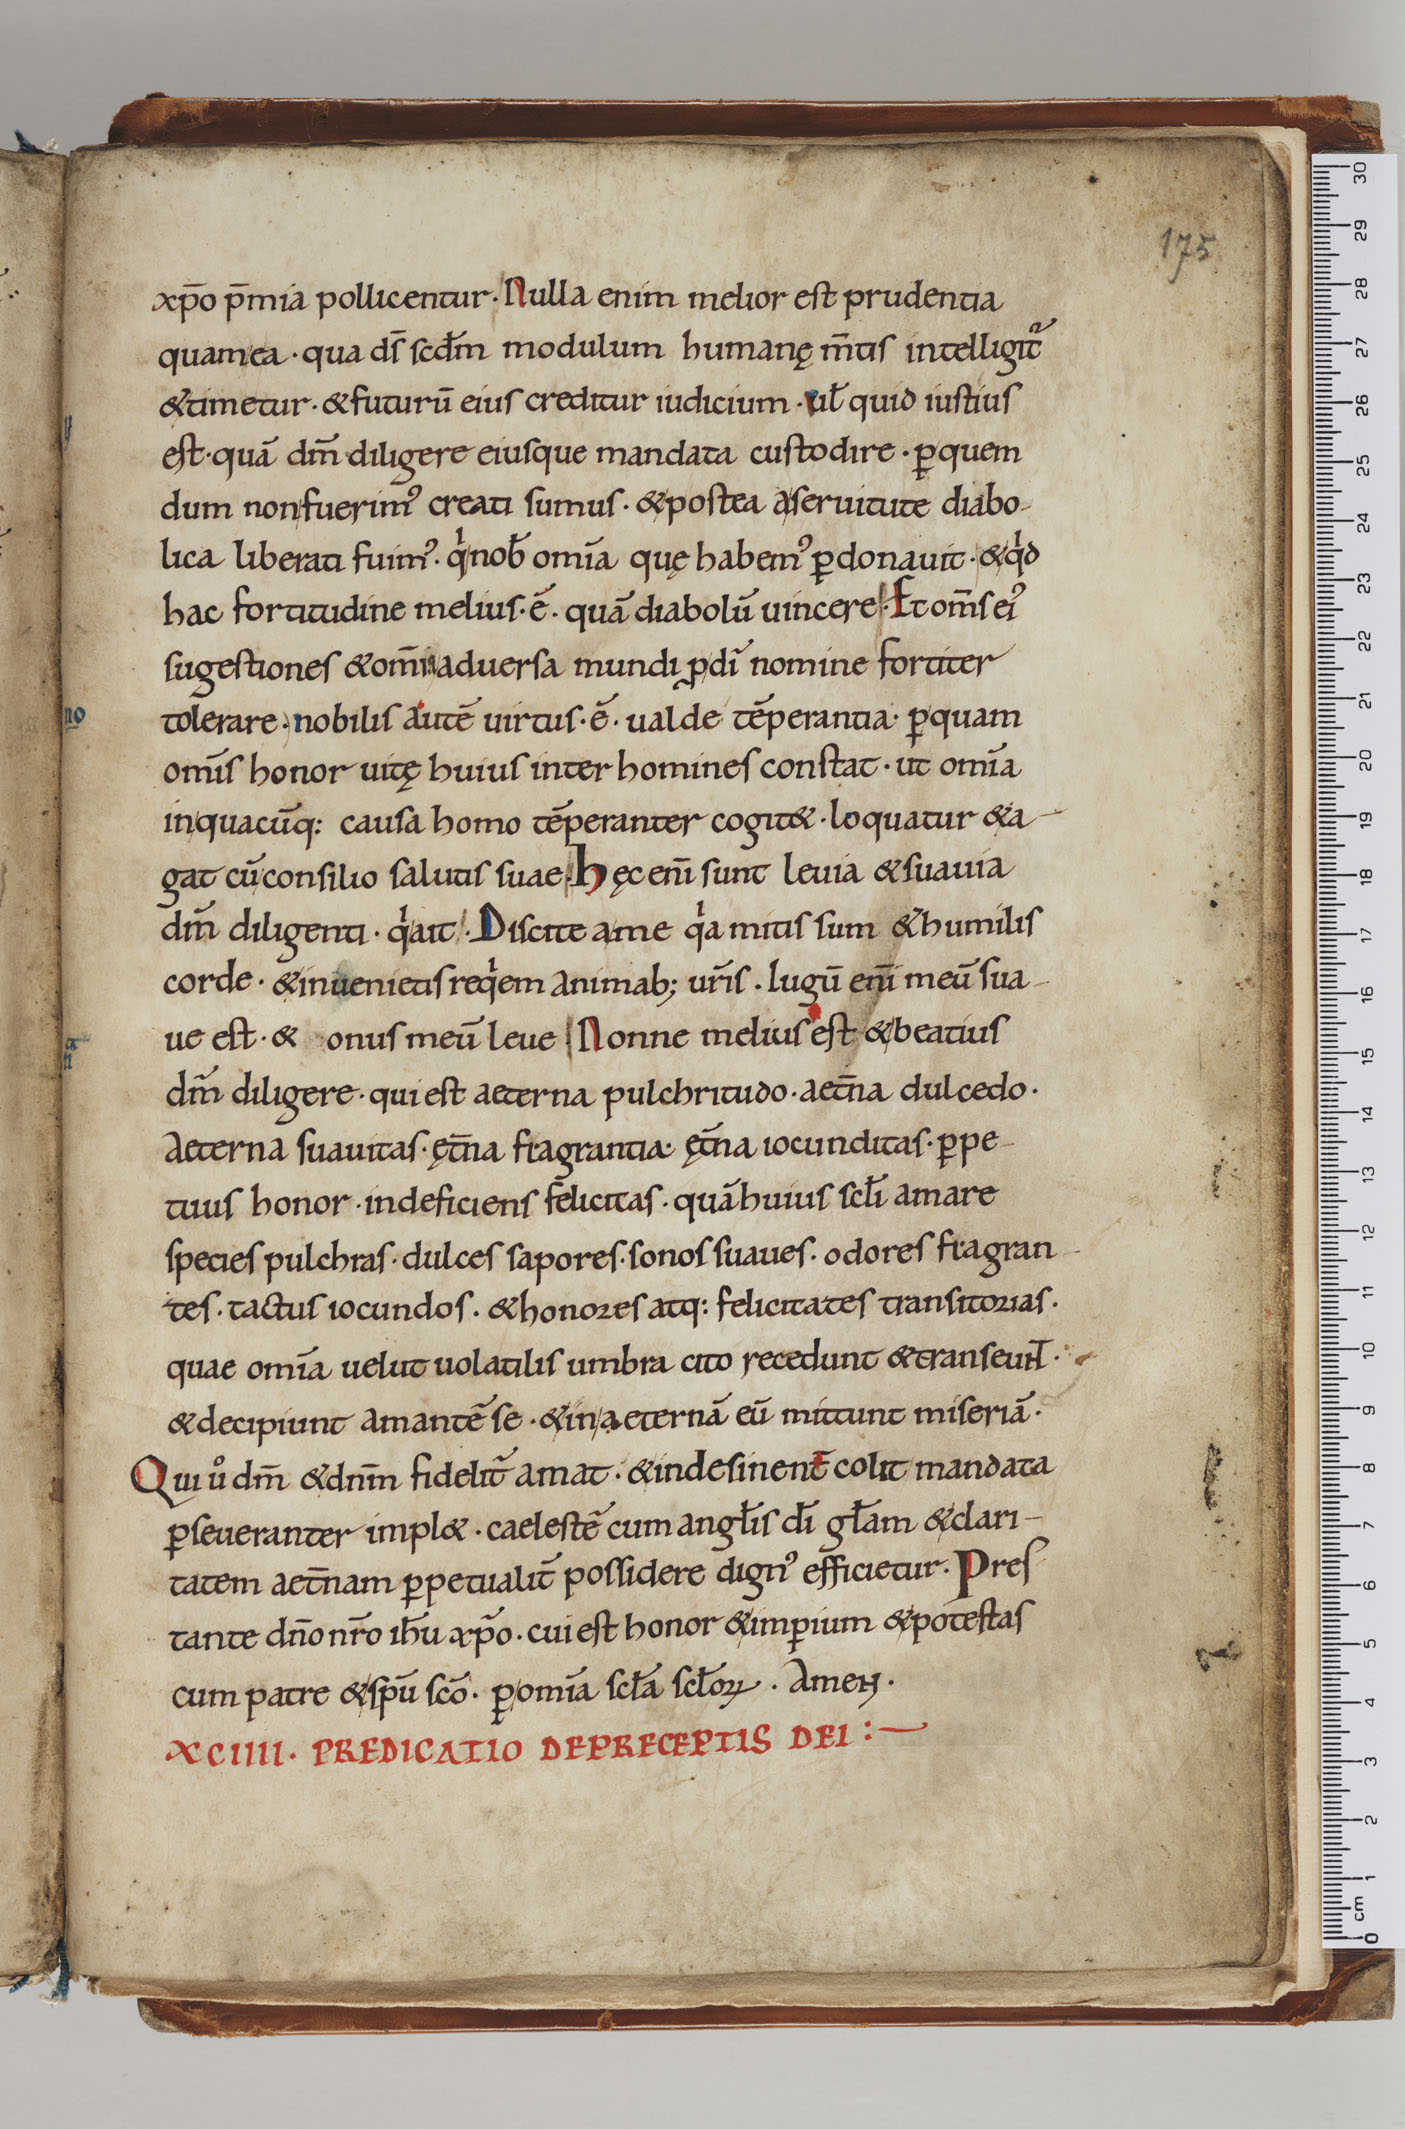 175
xp̄o p̄mia pollicentur. Nulla enim melior est prudentia
quam ea. qua ds̄ scđm modulum humanę m̄tis intelligit᷑
&timetur. &futurū eius creditur iudicium. uł quid iustius
est. quā dm̄ diligere eiusque mandata custodire. ꝑquem
dum non fuerimꝰ creati sumus. &postea aseruitute diabo-
lica liberati fuimꝰ. qͥnob̄ om̄ia quę habemꝰ ꝑdonauit. &qͥd
hac fortitudine melius. ē. quā diabolū uincere. Et om̄s eiꝰ
sugestiones &om̄ia aduersa mundi ꝓ dī nomine fortiter
tolerare. nobilis autē uirtus. ē. ualde tēperantia. ꝑquam
om̄is honor uitę huius inter homines constat. ut om̄ia
inquacūq: causa homo tēperanter cogit&. loquatur &a-
gat cū consilio salutis suae. hęc enī sunt leuia &suauia
dm̄ diligenti. qͥait. Discite ame qͥa mitis sum &humilis
corde. &inuenietis reqͥem animab; ur̄is. Iugū enī meū sua-
ue est. & onus meū leue. Nonne melius est &beatius
dm̄ diligere. qui est aeterna pulchritudo. aet̄na dulcedo.
Aeterna suauitas. ęt̄na fragrantia. ęt̄na iocunditas. ꝑpe-
tuus honor. indeficiens felicitas. quā huius scłi amare
species pulchras. dulces sapores. sonos suaues. odores fragran-
tes. tactus iocundos. &honores atq: felicitates transitorias.
quae om̄ia uelut uolatilis umbra cito recedunt &transeunt.
&decipiunt amantē se. &in aeternā eū mittunt miseriā.
Qui uͦ dm̄ &dnm̄ fidelit̄ amat. &indesinent̄ colit mandata
ꝑseueranter impl&. caelestē cum angłis dī głam &clari-
tatem aet̄nam ꝑpetualit̄ possidere dignꝰ efficietur. Pres-
tante dn̄o nr̄o ih̄u xp̄o. cui est honor &imꝑium &potestas
cum patre &spū scō. ꝑ om̄ia scła scłoꝝ. Amen.
XCIIII. PREDICATIO DEPRECEPTIS DEI:—